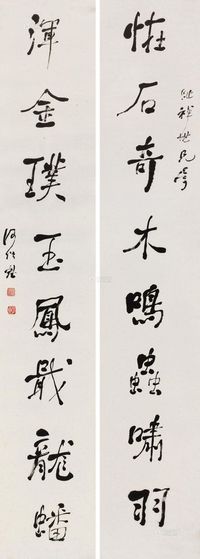 祥世兄
恠石奇木鳴蟲嘯羽
渾金璞玉鳳戢龍蟠
何紹基